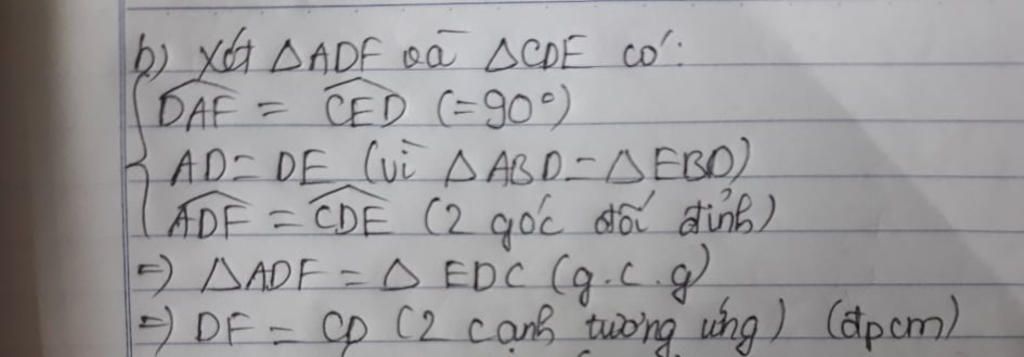 b) Xét ΔADF và ΔCDE có:
DAF = CED (=90°)
AD = DE (vì ΔABD = ΔEBD)
ADF = CDE (2 góc đối đỉnh)
=) ΔADF = Δ EDC (g.c.g)
=) DF = CD (2 cạnh tương ứng) (đpcm)